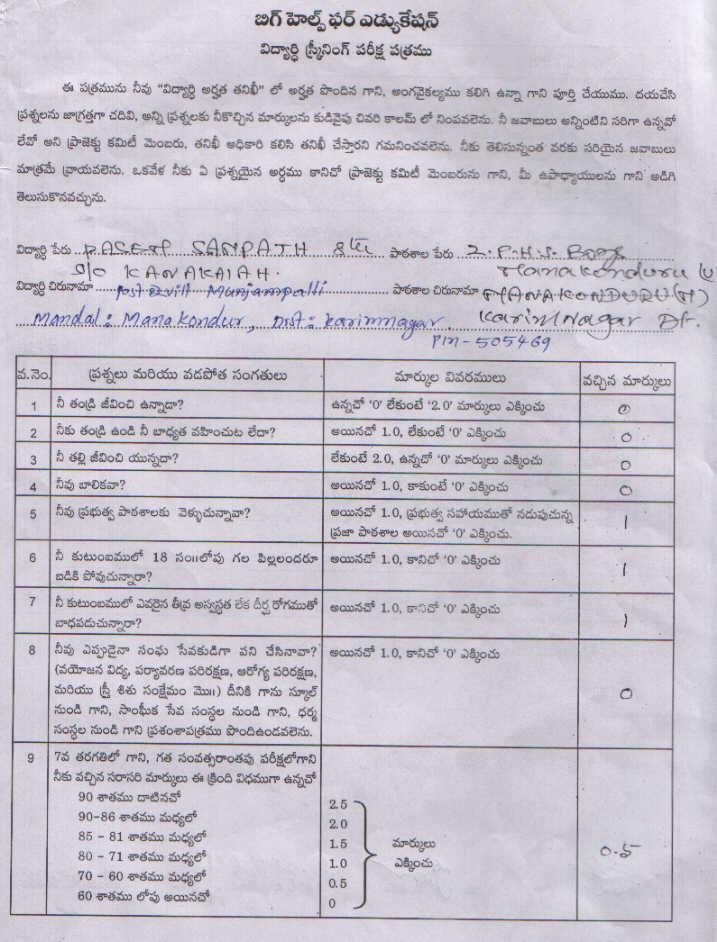 బిగ్ హెల్ప్ ఫర్ ఎడ్యుకేషన్
విద్యార్థి స్క్రీనింగ్ పరీక్ష పత్రము
ఈ పత్రమును నీవు "విద్యార్థి అర్హత తనిఖీ" లో అర్హత పొందిన గాని, అంగవైకల్యము కలిగి ఉన్నా గాని పూర్తి చేయుము. దయచేసి
ప్రశ్నలను జాగ్రత్తగా చదివి, అన్ని ప్రశ్నలకు నీకొచ్చిన మార్కులను కుడివైపు చివరి కాలమ్ లో నింపవలెను. నీ జవాబులు అన్నింటిని సరిగా ఉన్నవో
లేవో అని ప్రాజెక్టు కమిటీ మెంబరు, తనిఖీ అధికారి కలిసి తనిఖీ చేస్తారని గమనించవలెను. నీకు తెలిసున్నంత వరకు సరియైన జవాబులు
మాత్రమే వ్రాయవలెను. ఒకవేళ నీకు ఏ ప్రశ్నయైన అర్థము కానిచో ప్రాజెక్టు కమిటీ మెంబరును గాని, మీ ఉపాధ్యాయులను గాని అడిగి
తెలుసుకొనవచ్చును.
విద్యార్థి పేరు DASERI SAMPATH 8th పాఠశాల పేరు Z.P.H.S. Boys
S/o KANAKAIAH. Manakonduru
విద్యార్థి చిరునామా post & vill Munjampalli పాఠశాల చిరునామా MANAKONDURU (M)
Mandal: Manakondur, Dist: Karimnagar. Karimnagar Dt.
Pin-505469
వ.నెం. ప్రశ్నలు మరియు వడపోత సంగతులు మార్కుల వివరములు వచ్చిన మార్కులు
1 నీ తండ్రి జీవించి ఉన్నాడా? ఉన్నచో '0' లేకుంటే '2.0' మార్కులు ఎక్కించు 0
2 నీకు తండ్రి ఉండి నీ బాధ్యత వహించుట లేదా? అయినచో 1.0, లేకుంటే '0' ఎక్కించు 0
3 నీ తల్లి జీవించి యున్నదా? లేకుంటే 2.0, ఉన్నచో '0' మార్కులు ఎక్కించు 0
4 నీవు బాలికవా? అయినచో 1.0, కాకుంటే '0' ఎక్కించు 0
5 నీవు ప్రభుత్వ పాఠశాలకు వెళ్ళుచున్నావా? అయినచో 1.0, ప్రభుత్వ సహాయముతో నడుపుచున్న 1
ప్రజా పాఠశాల అయినచో '0' ఎక్కించు.
6 నీ కుటుంబములో 18 సం॥లోపు గల పిల్లలందరూ అయినచో 1.0, కానిచో '0' ఎక్కించు 1
బడికి పోవుచున్నారా?
7 నీ కుటుంబములో ఎవరైన తీవ్ర అస్వస్థత లేక దీర్ఘ రోగముతో అయినచో 1.0, కానిచో '0' ఎక్కించు 1
బాధపడుచున్నారా?
8 నీవు ఎప్పుడైనా సంఘ సేవకుడిగా పని చేసినావా? అయినచో 1.0, కానిచో '0' ఎక్కించు 0
(వయోజన విద్య, పర్యావరణ పరిరక్షణ, ఆరోగ్య పరిరక్షణ,
మరియు స్త్రీ శిశు సంక్షేమం మొ॥) దీనికి గాను స్కూల్
నుండి గాని, సాంఘీక సేవ సంస్థల నుండి గాని, ధర్మ
సంస్థల నుండి గాని ప్రశంశాపత్రము పొందిఉండవలెను.
9 7వ తరగతిలో గాని, గత సంవత్సరాంతపు పరీక్షలోగాని
నీకు వచ్చిన సరాసరి మార్కులు ఈ క్రింది విధముగా ఉన్నచో
90 శాతము దాటినచో 2.5
90-86 శాతము మధ్యలో 2.0
85 - 81 శాతము మధ్యలో 1.5 మార్కులు
80 - 71 శాతము మధ్యలో 1.0 ఎక్కించు 0.5
70 - 60 శాతము మధ్యలో 0.5
60 శాతము లోపు అయినచో 0